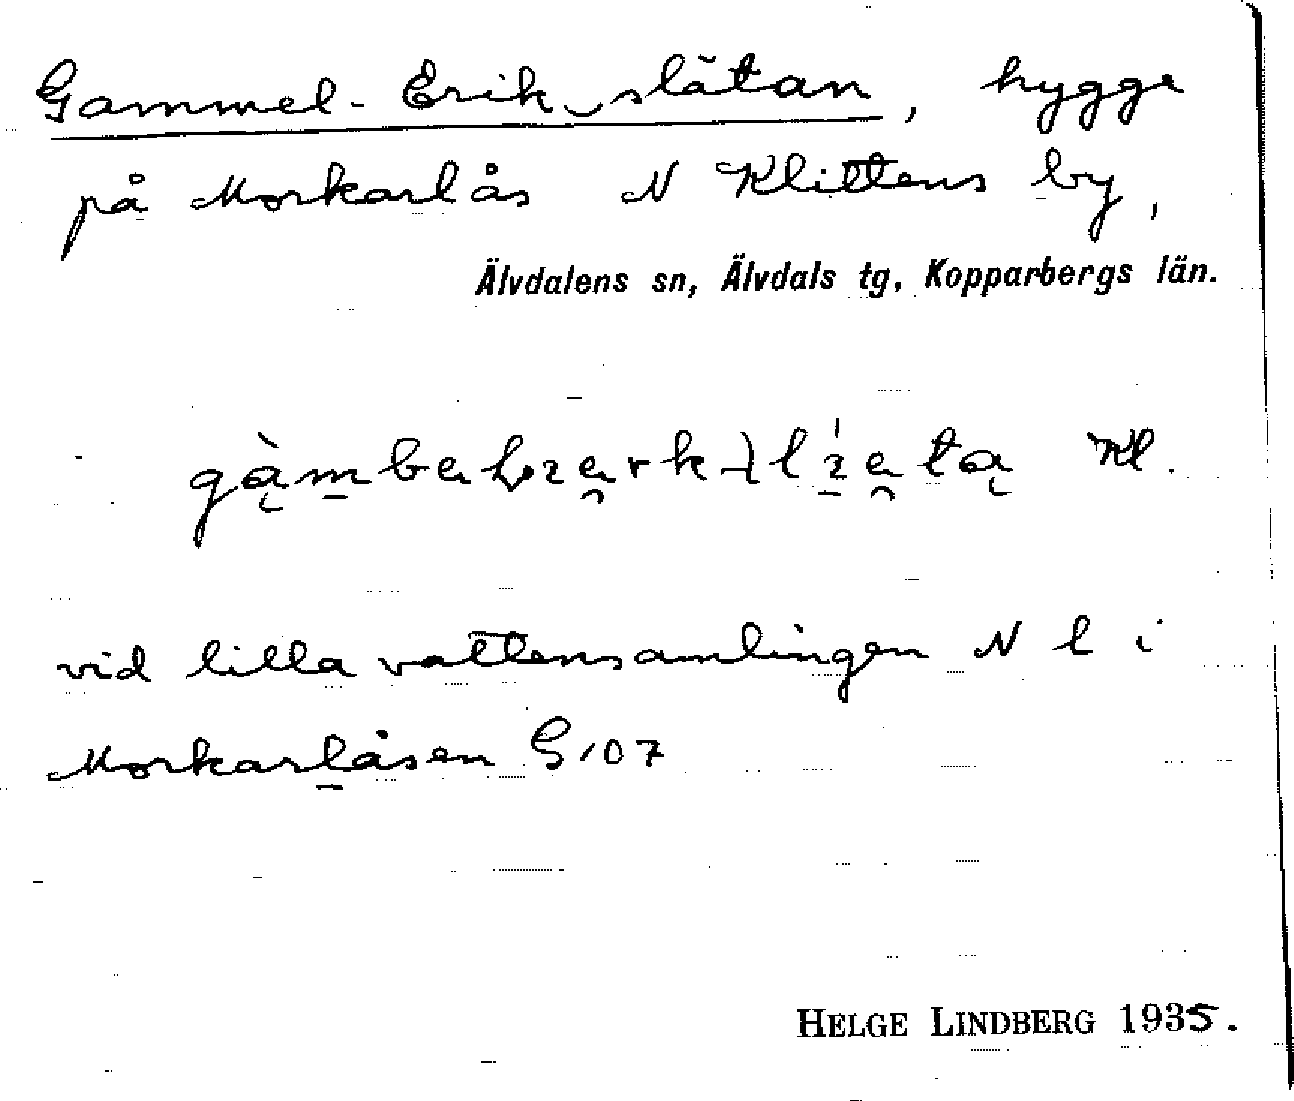 Gammel-Erik slåtan, hygge
på Morkarlås N Klittens by,
Älvdalens sn, Älvdals tg, Kopparbergs län.
Kl.
vid lilla vattensamlingen N l i
Morkarlåsen G 107
HELGE LINDBERG 1935.